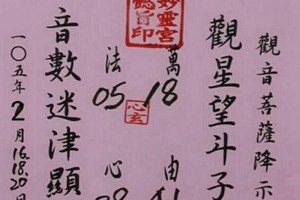 觀音菩薩降示
觀星望斗子
萬 由
18
法 心
05
音數迷津顯
一〇五年2月16.18.20日
妙靈宮
鶴旨印
心玄